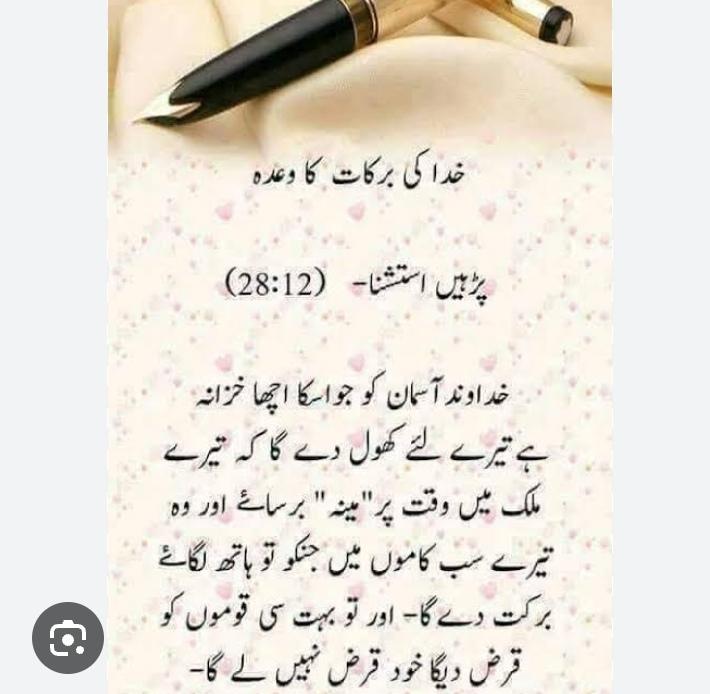 خدا کی برکات کا وعدہ
پڑہیں استشنا- (28:12)
خداوند آسمان کو جو اسکا اچھا خزانہ
ہے تیرے لئے کھول دے گا کہ تیرے
ملک میں وقت پر "مینہ" برسائے اور وہ
تیرے سب کاموں میں جنکو تو ہاتھ لگائے
برکت دے گا- اور تو بہت سی قوموں کو
قرض دیگا خود قرض نہیں لے گا-